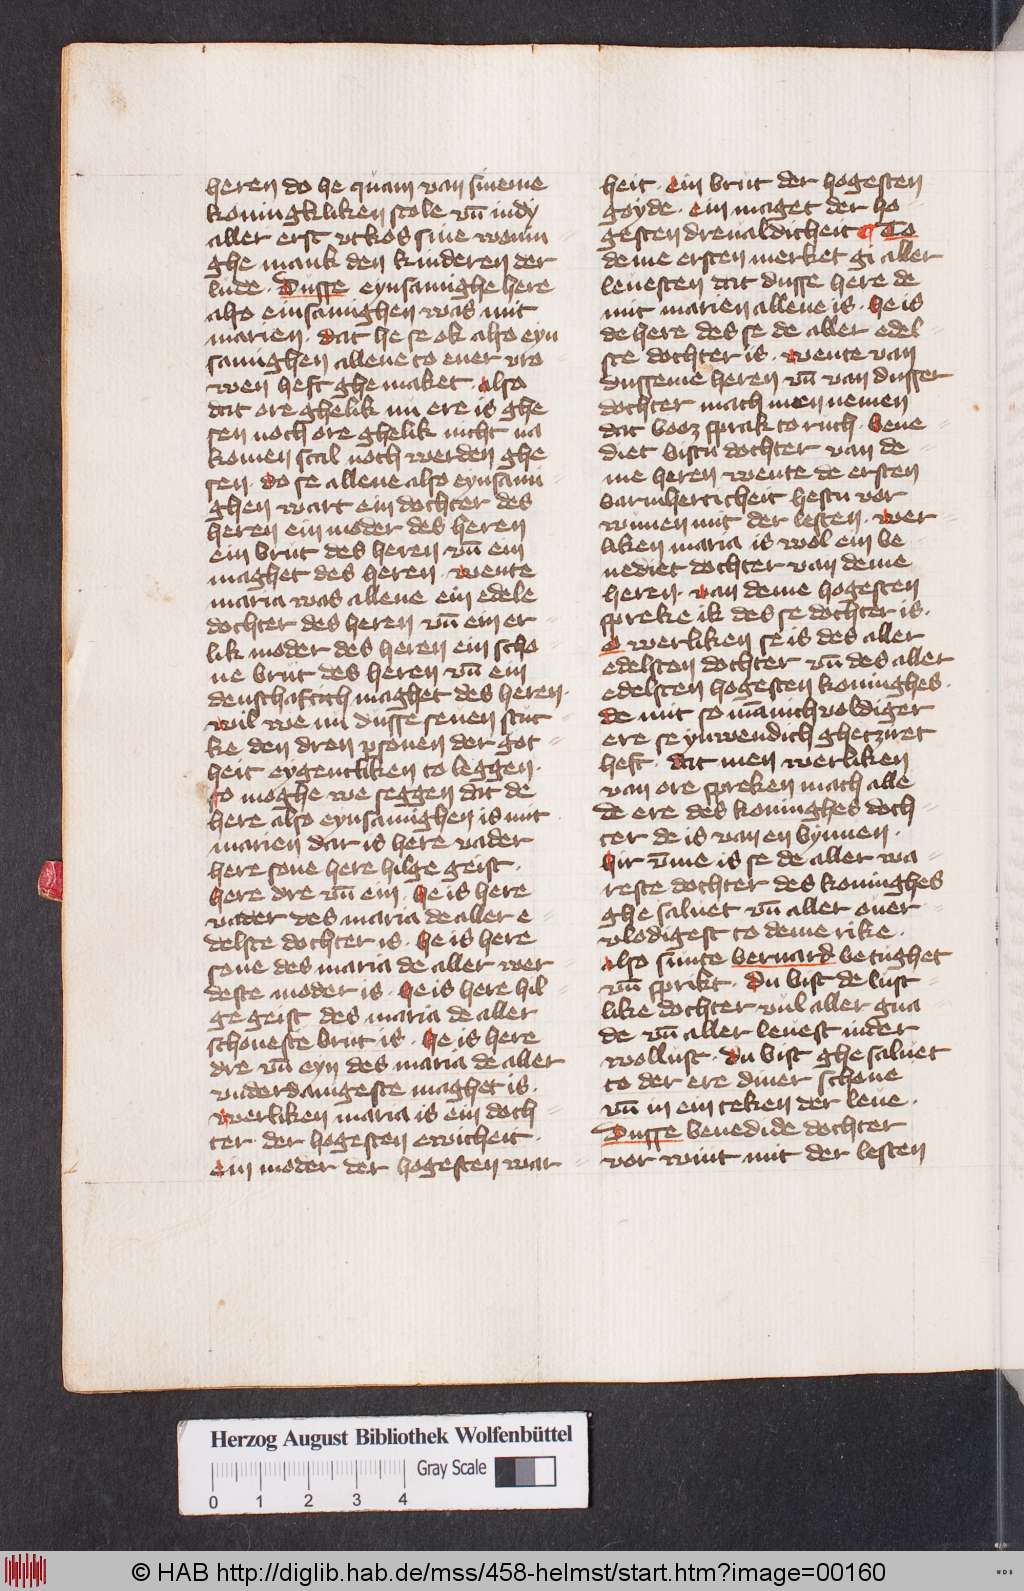 heren do he quam van sineme
koningkliken stole vn̄ in dy
aller erst vtkos sine wonin
ghe mank den kinderen der
lude · Dusse eynsamighe here
also einsamighen was mit
marien · dat he se ok also eyn
samighen allene to ener vro
wen heft ghe maket · also
dat ore ghelik nu ere is ghe
sen noch ore ghelik nicht na
komen scal noch werden ghe
sen · do se allene also eynsami
ghen wart ein dochter des
heren ein moder des heren
ein brut des heren vn̄ ein
maghet des heren · wente
maria was allene ein edele
dochter des heren vn̄ ein er
lik moder des heren ein scho
ne brut des heren vn̄ ein
denschaftich maghet des heren ·
wil we nu dusse seuen stuc
ke den dren ꝑsonen der got
heit eygentliken to leggen ·
so moghe we seggen dat de
here also eynsamighen is mit
marien dar is here vader
here sone here hilge geist ·
here dre vn̄ ein · he is here
vader des maria de aller e
delste dochter is · he is here
sone des maria de aller wer
deste moder is · he is here hil
ge geist des maria de aller
schoneste brut is · he is here
dre vn̄ eyn des maria de aller
vnderdanigeste maghet is ·
werliken maria is ein doch
ter der hogesten ewicheit ·
ein moder der hogesten war
heit · ein brut der hogesten
goyde · ein maget der ho
gesten dreualdicheit ¶ To
deme ersten merket gi aller
leuesten dat dusse here de
mit marien allene is · he is
de here des se de aller edel
ste dochter is · wente van
dusseme heren vn̄ van dusser
dochter mach men nemen
dat booz sprak to ruth · bene
diet bistu dochter van de
me heren wente de ersten
barmherticheit hestu vor
wunnen mit der lesten · wer
liken maria is wol ein be
nediet dochter van deme
heren · van deme hogesten
spreke ik des se dochter is ·
o werliken se is des aller
edelsten dochter vn̄ des aller
edelsten hogesten koninghes ·
de mit so mānichvoldiger
ere se ynwendich ghetziret
heft · dat men werliken
van ore spreken mach alle
de ere des koninghes doch
ter de is van en bynnen ·
hir vm̄e is se de aller wa
reste dochter des koninghes
ghe saluet vn̄ aller ouer
vlodigest to deme rike ·
also sunte bernard be tughet
vn̄ sprikt · Du bist de lust
like dochter vul aller gna
de vn̄ aller leuest in der
wollust · du bist ghe saluet
to der ere diner schone
vn̄ in ein teken der leue ·
Dusse benedide dochter
vor wint mit der lesten
Herzog August Bibliothek Wolfenbüttel
Gray Scale
0 1 2 3 4
© HAB http://diglib.hab.de/mss/458-helmst/start.htm?image=00160